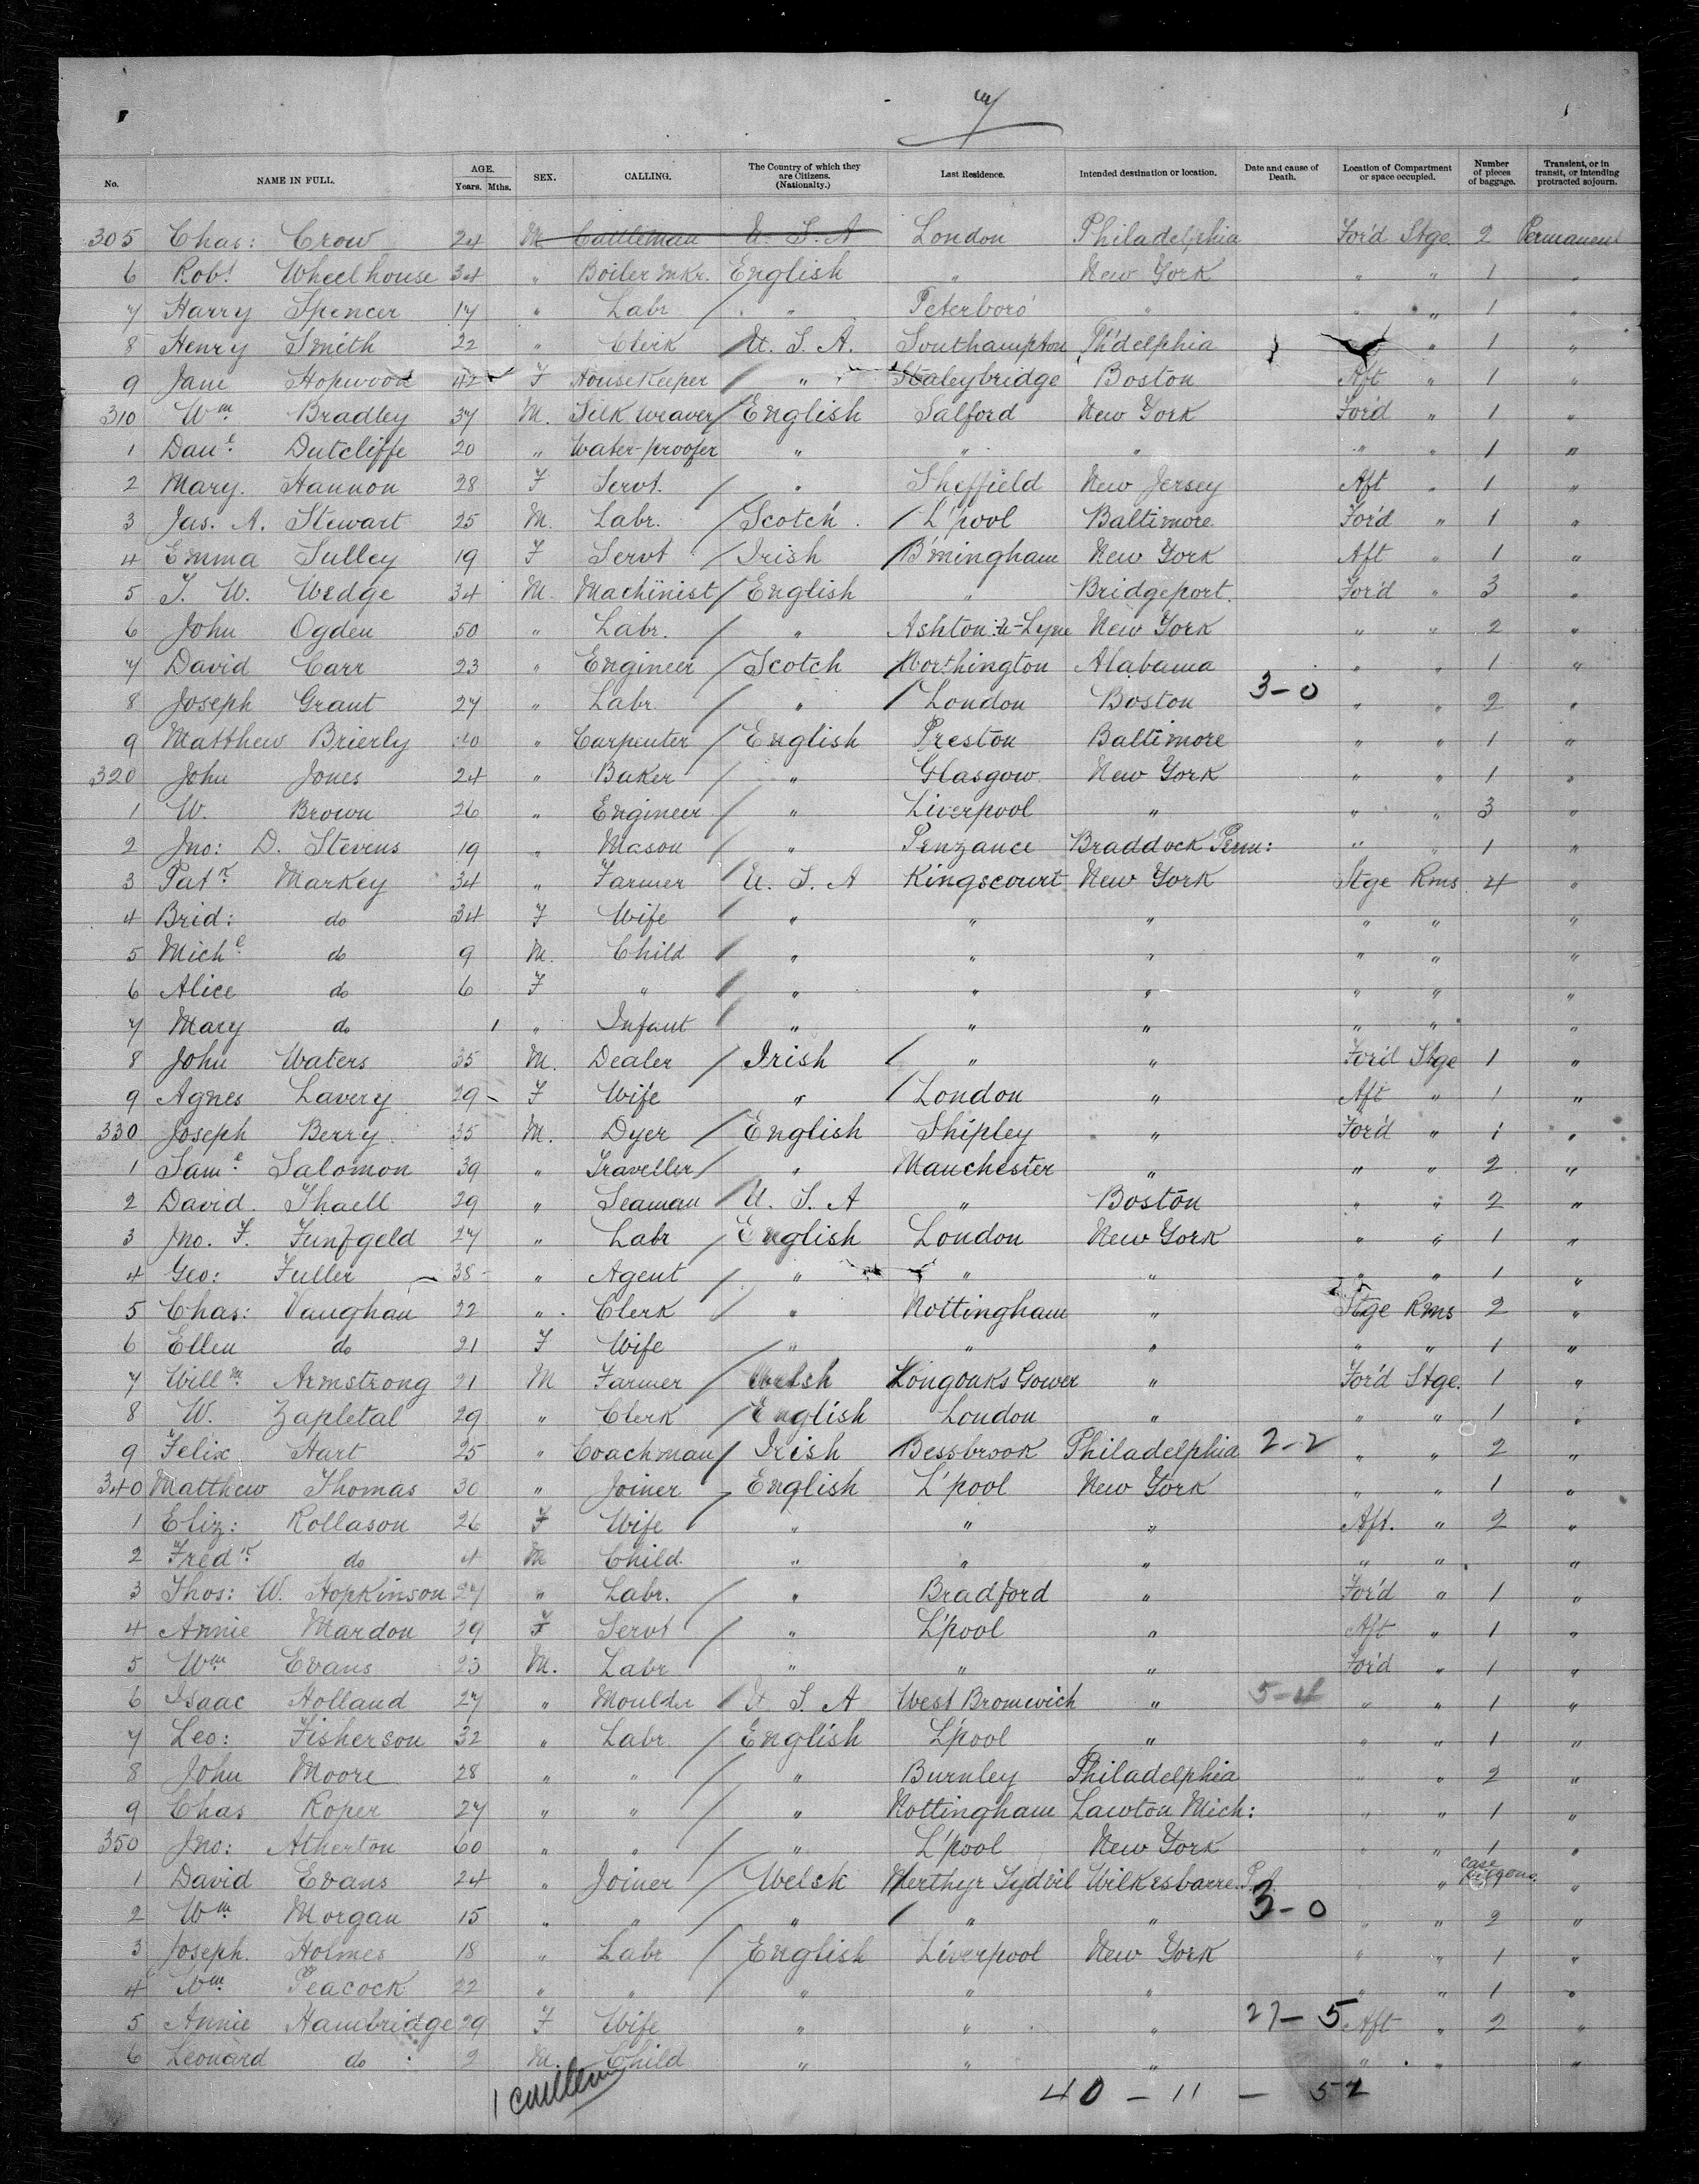 7
No. NAME IN FULL. AGE. Years. Mths. SEX. CALLING. The Country of which they are Citizens. (Nationality.) Last Residence. Intended destination or location. Date and cause of Death. Location of Compartment or space occupied. Number of pieces of baggage. Transient, or in transit, or intending protracted sojourn.
305 Chas: Crow 24 M Cattleman U. S. A London Philadelphia For'd Stge. 2 Permanent
6 Robt Wheelhouse 34 " Boiler mkr. English " New York " " 1 "
7 Harry Spencer 17 " Labr / " Peterboro' " " " 1 "
8 Henry Smith 22 " Clerk / U. S. A. Southampton Ph'delphia " 1 "
9 Jane Hopwood 42 F Housekeeper / " Staleybridge Boston Aft " 1 "
310 Wm Bradley 37 M. Silk weaver / English Salford New York For'd " 1 "
1 Danl Dutcliffe 20 " Water-proofer " " " " " 1 "
2 Mary. Hannon 28 F Servt. / " Sheffield New Jersey Aft " 1 "
3 Jas. A. Stewart 25 M. Labr. / Scotch / L'pool Baltimore For'd " 1 "
4 Emma Sulley 19 F Servt / Irish / B'mingham New York Aft " 1 "
5 T. W. Wedge 34 M. Machinist / English " Bridgeport. For'd " 3 "
6 John Ogden 50 " Labr. / " Ashton-u-Lyne New York " " 2 "
7 David Carr 23 " Engineer / Scotch / Worthington Alabama " " 1 "
8 Joseph Grant 27 " Labr / " / London Boston 3-0 " " 2 "
9 Matthew Brierly 40 " Carpenter / English Preston Baltimore " " 1 "
320 John Jones 24 " Baker / " Glasgow New York " " 1 "
1 W. Brown 26 " Engineer / " Liverpool " " " 3 "
2 Jno: D. Stevens 19 " Mason / " Penzance Braddock Penn: " " 1 "
3 Patk Markey 34 " Farmer / U. S. A Kingscourt New York Stge Rms 4 "
4 Brid: do 34 F Wife / " " " " " "
5 Michl do 9 M. Child / " " " " " "
6 Alice do 6 F " / " " " " " "
7 Mary do 1 " Infant / " " " " " "
8 John Waters 35 M. Dealer / Irish / " " For'd Stge 1 "
9 Agnes Lavery 29 - F Wife " / London " Aft " 1 "
330 Joseph Berry 35 M. Dyer / English Shipley " For'd " 1 "
1 Saml Salomon 39 " Traveller / " Manchester " " " 2 "
2 David. Thaell 29 " Seaman / U. S. A " Boston " " 2 "
3 Jno. F. Funfgeld 27 " Labr / English London New York " " 1 "
4 Geo: Fuller 38 - " Agent / " " " " " 1 "
5 Chas: Vaughan 22 " Clerk / " Nottingham " Stge Rms 2 "
6 Ellen do 21 F Wife " " " " " 1 "
7 Willm Armstrong 21 M Farmer / Welsh Longoaks Gower " For'd Stge. 1 "
8 W. Zapletal 29 " Clerk / English London " " " 1 "
9 Felix Hart 25 " Coachman / Irish Bessbrook Philadelphia 2-2 " " 2 "
340 Matthew Thomas 30 " Joiner English L'pool New York " " 1 "
1 Eliz: Rollason 26 F Wife / " " " Aft. " 2 "
2 Fredk do 4 M Child. " " " " " "
3 Thos: W. Hopkinson 27 " Labr. / " Bradford " For'd " 1 "
4 Annie Mardon 29 F Servt / " L'pool " Aft " 1 "
5 Wm Evans 23 M. Labr " " " For'd " 1 "
6 Isaac Holland 27 " Moulder / U. S. A West Bromwich " 5-4 " " 1 "
7 Leo: Fisherson 32 " Labr / English L'pool " " " 1 "
8 John Moore 28 " " / " Burnley Philadelphia " 2 "
9 Chas Roper 27 " " / " Nottingham Lawton Mich: " " 1 "
350 Jno: Atherton 60 " " / " L'pool New York " " 1 "
1 David Evans 24 " Joiner / Welsh Merthyr Tydvil Wilkesbarre Pa " case "
2 Wm Morgan 15 " " / " / " " 3-0 " " 2 "
3 Joseph. Holmes 18 " Labr / English Liverpool New York " " 1 "
4 Wm Peacock 22 " " / " " " " " 1 "
5 Annie Hambridge 29 F Wife " " " 27-5 Aft " 2 "
6 Leonard do 2 M. Child " " " " " "
1 cattleman 40 - 11 - 52